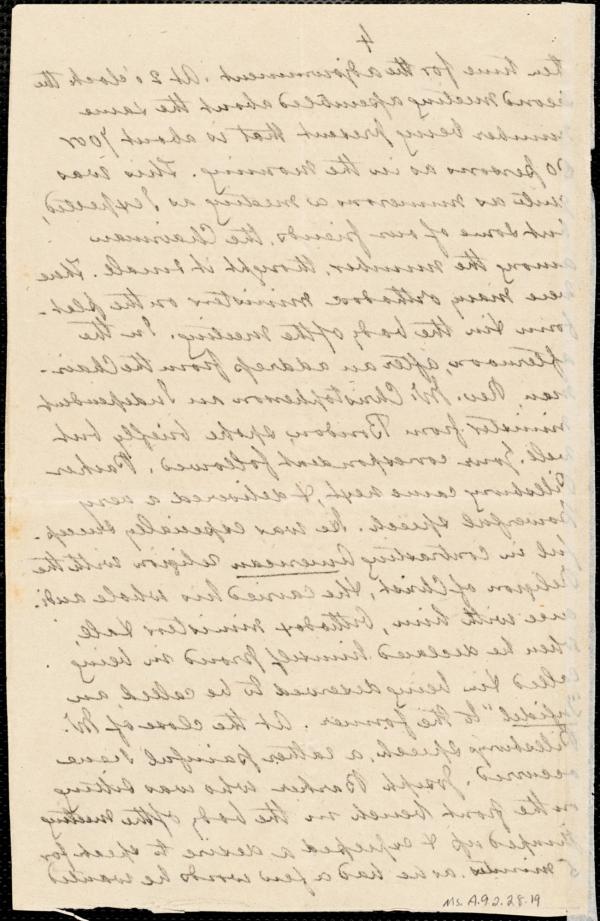 4
ten time for the adjournment. At 2 o'clock the
second meeting assembled about the same
number being present that is about 700 or
persons as in the morning. This was
quite as numerous a meeting as I expected,
but some of our friends, the Chairman
among the number, thought it small. There
were many orthodox ministers on the plat-
form & in the body of the meeting. In the
afternoon, after an address from the Chair-
man, Rev. Mr. Christopherson an Independent
minister from spoke briefly but
well. Your correspondent followed. Parker
Pillsbury came next, & delivered a very
powerful speech. He was especially success-
ful in contrasting American religion with the
religion of Christ, & he carried his whole audi-
ence with him, Orthodox ministers & all,
when he declared himself proud in being
called & in being deserved to be called, an
"infidel" to the former. At the close of Mr.
Pillsbury's speech, a rather painful scene
occurred. Joseph Barker who was sitting
on the front bench in the body of the meeting
jumped up & expressed a desire to speak for
5 minutes as he had a few words he wanted
Ms. A.9.2.28.19